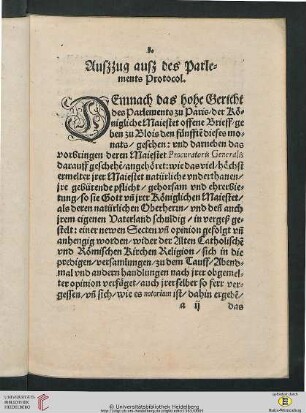 3.
Außzzug auß des Parle-
ments Protocol.
DEmnach das hohe Gericht
des Parlements zu Paris/der Kö-
nigliche Maiestet offene Brieff/ge
ben zu Blois den fünffte dieses mo-
nats/gesehen: vnd darneben das
vorbringen deren Maiestet Procuratoris Generalis
darauff geschehē/angehöret: wie das viel höchst
ermelter jrer Maiestet natürliche vnderthanen/
jre gebürende pflicht/gehorsam vnd ehrerbie-
tung/so sie Gott vñ jrer Königlichen Maiestet/
als deren natürlichen Obeherrn/vnd deñ auch
jrem eigenen Vaterland schuldig/in vergeß ge-
stelt: einer newen Secten vñ opinion gefolgt vñ
anhengig worden/wider der Alten Catholischē
vnd Römischen Kirchen Religion/sich in die
predigen/versamlungen/zu dem Tauff/Abend-
mal vnd andern handlungen nach jrer obgemel-
ter opinion verfüget/auch jrer selber so fern ver-
gessen/vñ sich/wie es notorium ist/dahin ergebē/
a ij das
UNIVERSITÄTS-
BIBLIOTHEK
HEIDELBERG
© Universitätsbibliothek Heidelberg
gefördert durch die